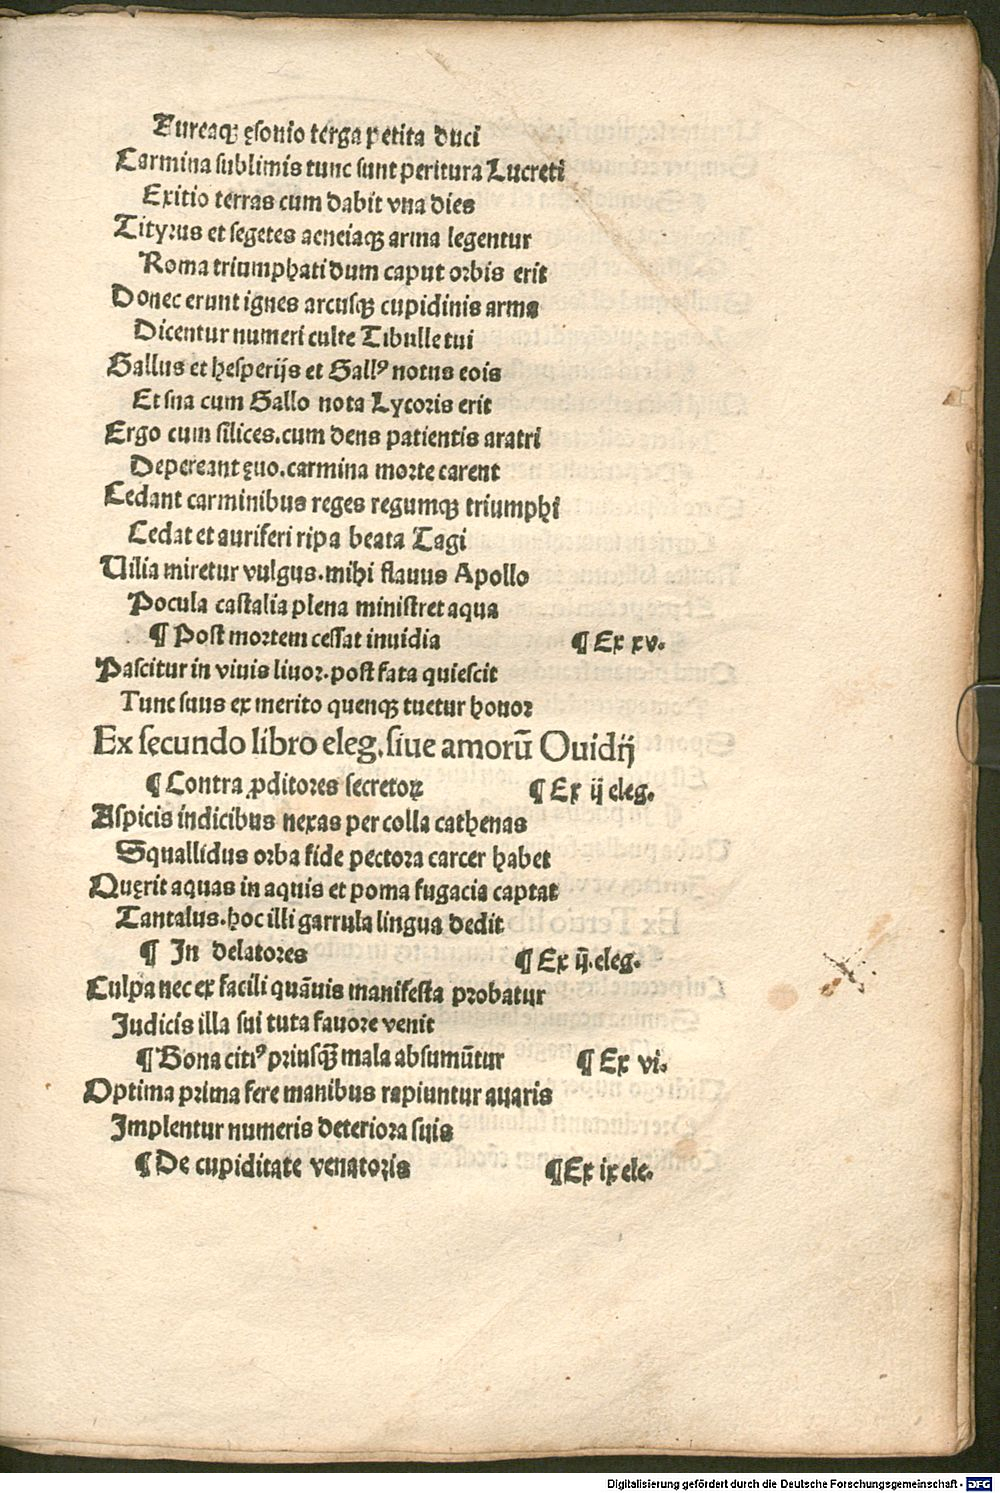 Aureaqꝫ ęsonio terga petita duci
Carmina sublimis tunc sunt peritura Lucreti
Exitio terras cum dabit vna dies
Tityrus et segetes aeneiaqꝫ arma legentur
Roma triumphati dum caput orbis erit
Donec erunt ignes arcusqꝫ cupidinis arma
Dicentur numeri culte Tibulle tui
Gallus et hesperijs et Gallꝰ notus eois
Et sua cum Gallo nota Lycoris erit
Ergo cum silices.cum dens patientis aratri
Depereant ęuo.carmina morte carent
Cedant carminibus reges regumqꝫ triumphi
Cedat et auriferi ripa beata Tagi
Uilia miretur vulgus.mihi flauus Apollo
Pocula castalia plena ministret aqua
¶ Post mortem cessat inuidia ¶ Ex xv.
Pascitur in viuis liuor.post fata quiescit
Tunc suus ex merito quenqꝫ tuetur honor
Ex secundo libro eleg.siue amorū Ouidij
¶ Contra ꝓditores secretoꝝ ¶ Ex ij eleg.
Aspicis indicibus nexas per colla cathenas
Squallidus orba fide pectora carcer habet
Quęrit aquas in aquis et poma fugacia captat
Tantalus.hoc illi garrula lingua dedit
¶ In delatores ¶ Ex ij.eleg.
Culpa nec ex facili quāuis manifesta probatur
Judicis illa sui tuta fauore venit
¶ Bona citiꝰ priusqꝫ̄ mala absumūtur ¶ Ex vi.
Optima prima fere manibus rapiuntur auaris
Implentur numeris deteriora suis
¶ De cupiditate venatoris ¶ Ex ix ele.
Digitalisierung gefördert durch die Deutsche Forschungsgemeinschaft - DFG